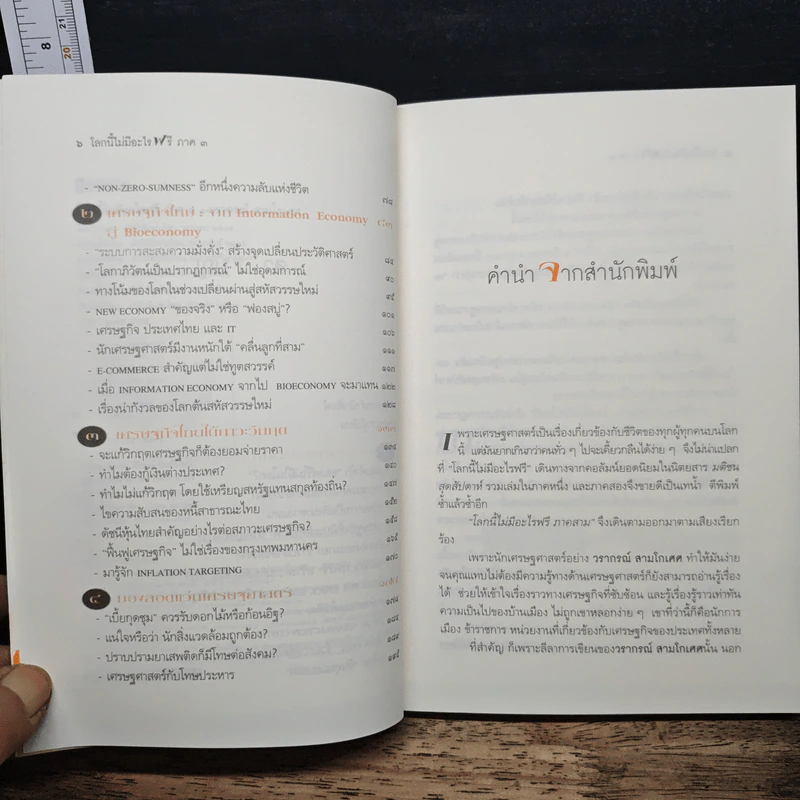 ๖ โลกนี้ไม่มีอะไรฟรี ภาค ๓
- "NON-ZERO-SUMNESS" อีกหนึ่งความลับแห่งชีวิต ๗๘
๒ เศรษฐกิจใหม่ : จาก Information Economy
สู่ Bioeconomy
- "ระบบการสะสมความมั่งคั่ง" สร้างจุดเปลี่ยนประวัติศาสตร์ ๘๔
- "โลกาภิวัตน์เป็นปรากฏการณ์" ไม่ใช่อุดมการณ์ ๙๐
- ทางโน้มของโลกในช่วงเปลี่ยนผ่านสู่สหัสวรรษใหม่ ๙๕
- NEW ECONOMY "ของจริง" หรือ "ฟองสบู่"? ๑๐๑
- เศรษฐกิจ ประเทศไทย และ IT ๑๐๖
- นักเศรษฐศาสตร์มีงานหนักใต้ "คลื่นลูกที่สาม" ๑๑๑
- E-COMMERCE สำคัญแต่ไม่ใช่ทูตสวรรค์ ๑๑๗
- เมื่อ INFORMATION ECONOMY จากไป BIOECONOMY จะมาแทน ๑๒๒
- เรื่องน่ากังวลของโลกต้นสหัสวรรษใหม่ ๑๒๘
๓ เศรษฐกิจไทยใต้ภาวะวิกฤต
- จะแก้วิกฤตเศรษฐกิจก็ต้องยอมจ่ายราคา ๑๓๔
- ทำไมต้องกู้เงินต่างประเทศ? ๑๔๐
- ทำไมไม่แก้วิกฤต โดยใช้เหรียญสหรัฐแทนสกุลท้องถิ่น? ๑๔๗
- ไขความสับสนของหนี้สาธารณะไทย ๑๕๒
- ดัชนีหุ้นไทยสำคัญอย่างไรต่อสภาวะเศรษฐกิจ? ๑๕๘
- "ฟื้นฟูเศรษฐกิจ" ไม่ใช่เรื่องของกรุงเทพมหานคร ๑๖๕
- มารู้จัก INFLATION TARGETING ๑๗๐
๔ มองสังคมแบบเศรษฐศาสตร์
- "เบี้ยกุดชุม" ควรรับดอกไม้หรือก้อนอิฐ? ๑๗๘
- แน่ใจหรือว่า นักสิ่งแวดล้อมถูกต้อง? ๑๘๔
- ปราบปรามยาเสพติดก็มีโทษต่อสังคม? ๑๘๙
- เศรษฐศาสตร์กับโทษประหาร ๑๙๕
คำนำ จากสำนักพิมพ์
เพราะเศรษฐศาสตร์เป็นเรื่องเกี่ยวข้องกับชีวิตของทุกผู้ทุกคนบนโลก
นี้ แต่มันยากเกินกว่าคนทั่ว ๆ ไปจะเคี้ยวกลืนได้ง่าย ๆ จึงไม่น่าแปลก
ที่ "โลกนี้ไม่มีอะไรฟรี" เดินทางจากคอลัมน์ยอดนิยมในนิตยสาร มติชน
สุดสัปดาห์ รวมเล่มในภาคหนึ่ง และภาคสองจึงขายดีเป็นเทน้ำ ตีพิมพ์
ซ้ำแล้วซ้ำอีก
"โลกนี้ไม่มีอะไรฟรี ภาคสาม" จึงเดินตามออกมาตามเสียงเรียก
ร้อง
เพราะนักเศรษฐศาสตร์อย่าง วรากรณ์ สามโกเศศ ทำให้มันง่าย
จนคุณแทบไม่ต้องมีความรู้ทางด้านเศรษฐศาสตร์ก็ยังสามารถอ่านรู้เรื่อง
ได้ ช่วยให้เข้าใจเรื่องราวทางเศรษฐกิจที่ซับซ้อน และรู้เรื่องรู้ราวเท่าทัน
ความเป็นไปของบ้านเมือง ไม่ถูกเขาหลอกง่าย ๆ เขาที่ว่านี้ก็คือนักการ
เมือง ข้าราชการ หน่วยงานที่เกี่ยวข้องกับเศรษฐกิจของประเทศทั้งหลาย
ที่สำคัญ ก็เพราะลีลาการเขียนของวรากรณ์ สามโกเศศนั้น นอก